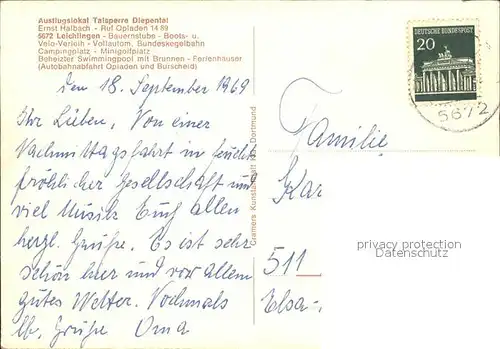 Ausflugslokal Talsperre Diepental
Ernst Halbach - Ruf Opladen 14 89
5672 Leichlingen - Bauernstube - Boots- u.
Velo-Verleih - Vollautom. Bundeskegelbahn
Campingplatz - Minigolfplatz
Beheizter Swimmingpool mit Brunnen - Ferienhäuser
(Autobahnabfahrt Opladen und Burscheid)
den 18. September 1969
Ihr Lieben, Von einer
Nachmittagsfahrt in feucht
fröhlicher Gesellschaft und
viel Musik Euch allen
herzl. Grüße. Es ist sehr
schön hier und vor allem
gutes Wetter. Nochmals
lb. Grüße Oma
Cramers Kunstanstalt KG, Dortmund
DEUTSCHE BUNDESPOST
20
5672
Familie
Kar
511
Elsa-
privacy protection
Datenschutz